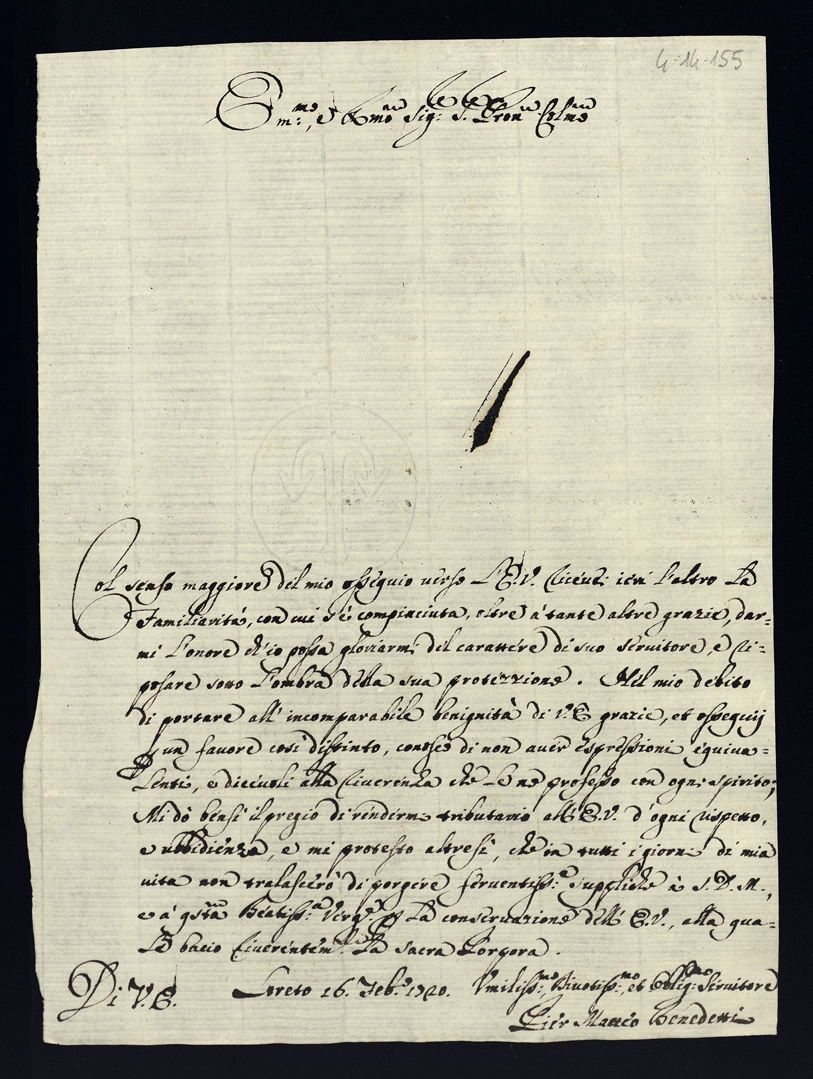 4-14-155
Em:mo, e Rmo Sig: S. Pron Colmo
Col senso maggiore del mio osseguio verso L'E.V. riceuei ieri l'altro la
Familiarità, con cui s'è compiaciuta, oltre à tante altre grazie, dar=
mi l'onore ch'io possa gloriarmi del carattere di suo seruitore, e ri=
posare sotto l'ombra della sua protezzione. Nel mio debito
di portare all'incomparabile benignità di V.E. grazie, et osseguij
p un fauore così distinto, conosco di non auer espressioni equiua=
lenti, e diceuoli alla riuerenza che le ne professo con ogni spirito;
Mi dò bensì il pregio di rendermi tributario all'E.V. d'ogni rispetto,
e ubbidienza, e mi protesto altresì, che in tutti i giorni di mia
uita non tralascerò di porgere feruentiss:e suppliche à S.D.M.,
e à qsta Beatiss:a Verg:e p la conseruazione dell'E.V., alla qua=
le bacio riuerentem:te la sacra Porpora.
Di V.E. Loreto 16. Feb:o 1720. Vmiliss:mo, Diuotiss:mo, et Oblig:mo Seruitore
Pier Matteo Benedetti